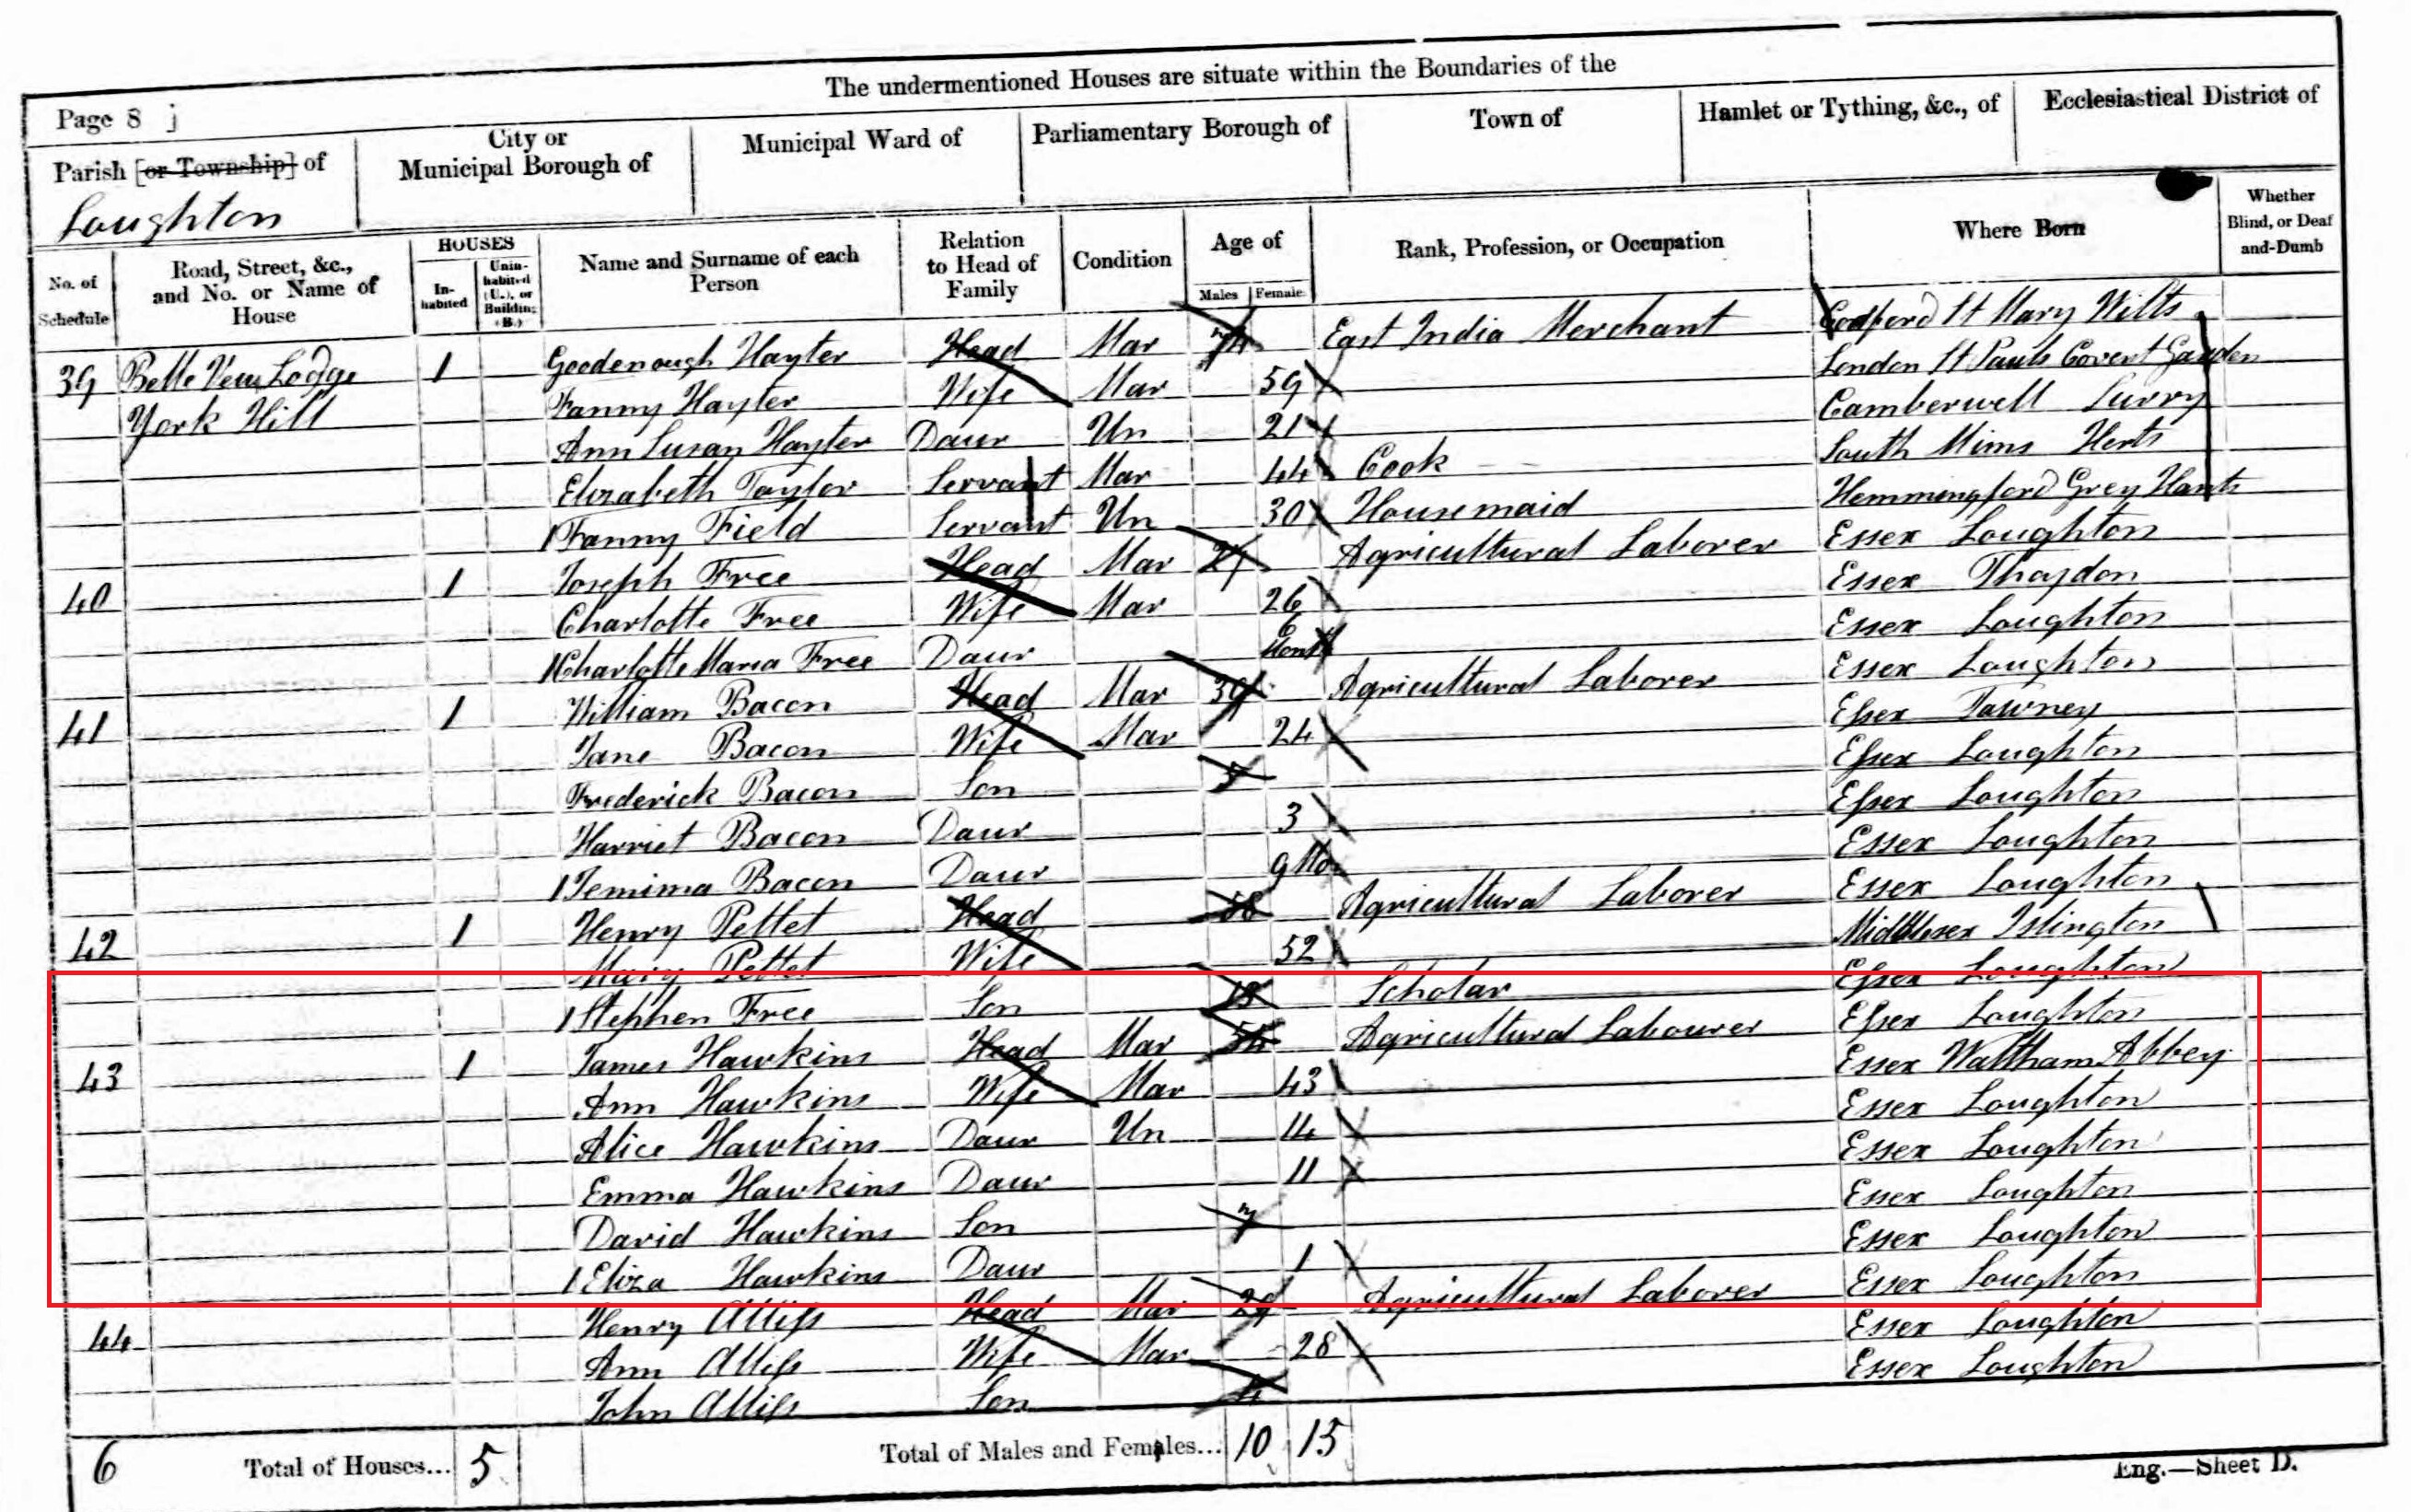 The undermentioned Houses are situate within the Boundaries of the
Page 8 j
Parish [or Township] of
Loughton
City or
Municipal Borough of
Municipal Ward of
Parliamentary Borough of
Town of
Hamlet or Tything, &c., of
Ecclesiastical District of
No. of
Schedule
Road, Street, &c.,
and No. or Name of
House
HOUSES
In-
habited
Unin-
habited
(U.), or
Building
(B.)
Name and Surname of each
Person
Relation
to Head of
Family
Condition
Age of
Males Females
Rank, Profession, or Occupation
Where Born
Whether
Blind, or Deaf
and-Dumb
39 Belle Veu Lodge 1 Goodenough Hayter Head Mar East India Merchant St Mary Wilts
York Hill Fanny Hayter Wife Mar 59 London St Pauls Covent Garden
Ann Susan Hayter Daur Un 21 Camberwell Surry
Elizabeth Taylor Servant Mar 44 Cook South Mims Herts
Fanny Field Servant Un 30 Housemaid Hemmingford Grey Hants
40 1 Joseph Free Head Mar Agricultural Laborer Essex Loughton
Charlotte Free Wife Mar 26 Essex Thaydon
Charlotte Maria Free Daur 6 Month Essex Loughton
41 1 William Bacon Head Mar Agricultural Laborer Essex Loughton
Jane Bacon Wife Mar 24 Essex Tawney
Frederick Bacon Son 5 Essex Loughton
Harriet Bacon Daur 3 Essex Loughton
Jemima Bacon Daur 9 Mo Essex Loughton
42 1 Henry Pettet Head 58 Agricultural Laborer Essex Loughton
Mary Pettet Wife 52 Middlesex Islington
Stephen Free Son Scholar Essex Loughton
43 1 James Hawkins Head Mar 54 Agricultural Labourer Essex Loughton
Ann Hawkins Wife Mar 43 Essex Waltham Abbey
Alice Hawkins Daur Un 14 Essex Loughton
Emma Hawkins Daur 11 Essex Loughton
David Hawkins Son 7 Essex Loughton
Eliza Hawkins Daur 1 Essex Loughton
44 Henry Alliss Head Mar 29 Agricultural Laborer Essex Loughton
Ann Alliss Wife Mar 28 Essex Loughton
John Alliss Son 4 Essex Loughton
6 Total of Houses... 5 Total of Males and Females... 10 15
Eng.—Sheet D.